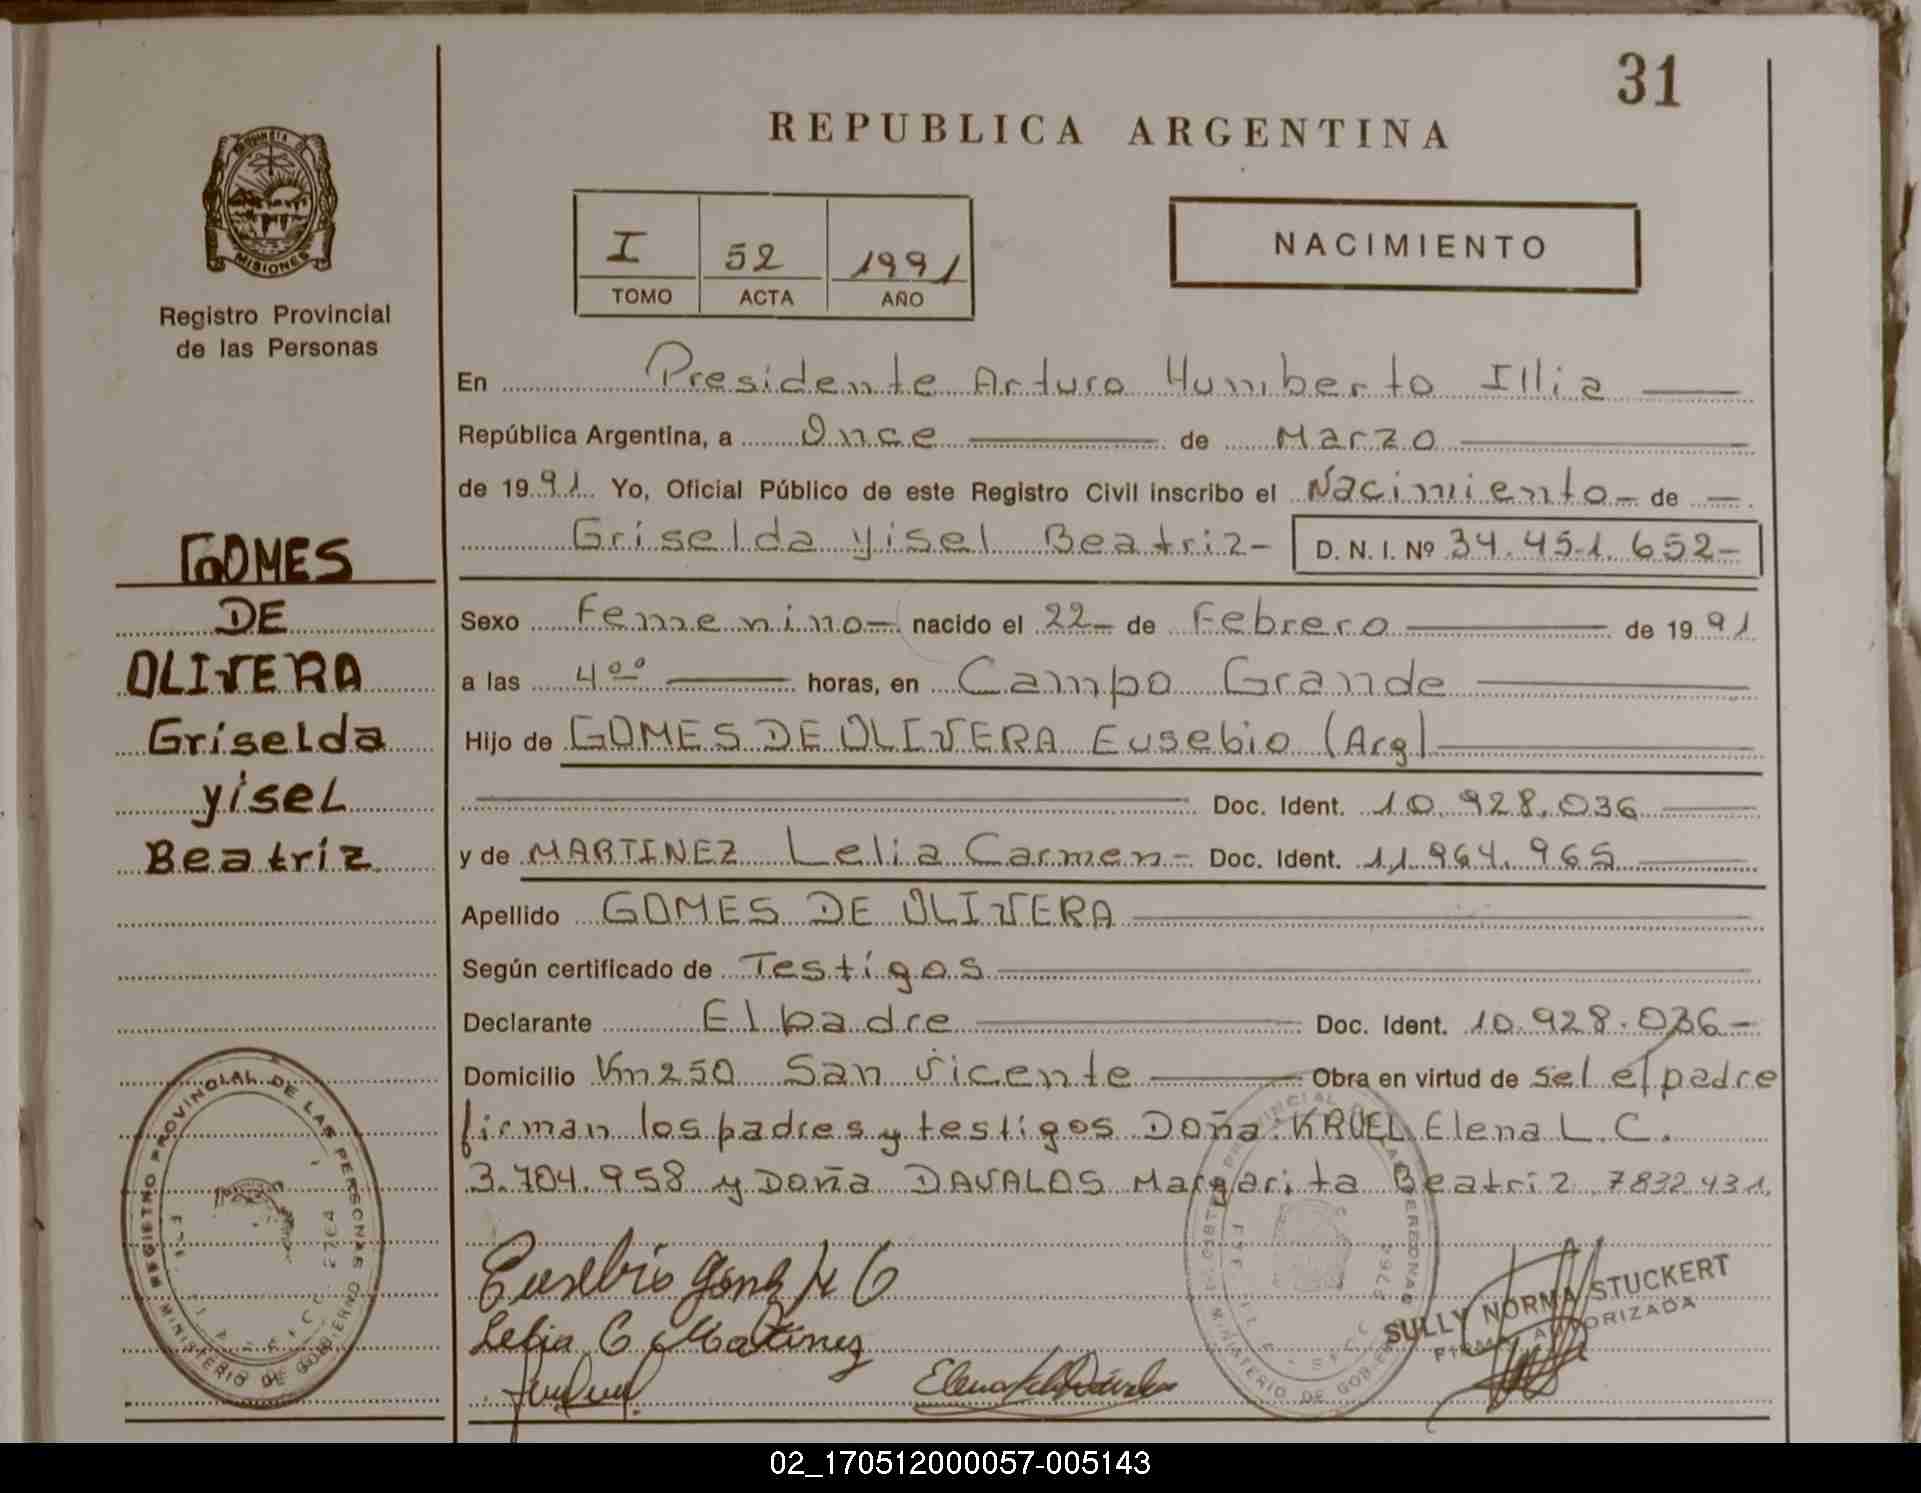 31
REPUBLICA ARGENTINA
MISIONES
Registro Provincial
de las Personas
I 52 1991
TOMO ACTA AÑO
NACIMIENTO
En Presidente Arturo Humberto Illia
República Argentina, a Once de Marzo
de 1991 Yo, Oficial Público de este Registro Civil inscribo el Nacimiento de
Griselda Yisel Beatriz D. N. I. Nº 34.451.652
Sexo Femenino nacido el 22 de Febrero de 1991
a las 4°° horas, en Campo Grande
Hijo de GOMES DE OLIVERA Eusebio (Arg)
Doc. Ident. 10.928.036
y de MARTINEZ Lelia Carmen Doc. Ident. 11.964.965
Apellido GOMES DE OLIVERA
Según certificado de Testigos
Declarante El padre Doc. Ident. 10.928.036
Domicilio Km 250 San Vicente Obra en virtud de sel el padre
firman los padres y testigos Doña KRUEL Elena L.C.
3.704.958 y Doña DAVALOS Margarita Beatriz 7832431
GOMES
DE
OLIVERA
Griselda
Yisel
Beatriz
REGISTRO PROVINCIAL DE LAS PERSONAS
MINISTERIO DE GOBIERNO
Eusebio
Lelia C Martinez
SULLY NORMA STUCKERT
FIRMA AUTORIZADA
02_170512000057-005143